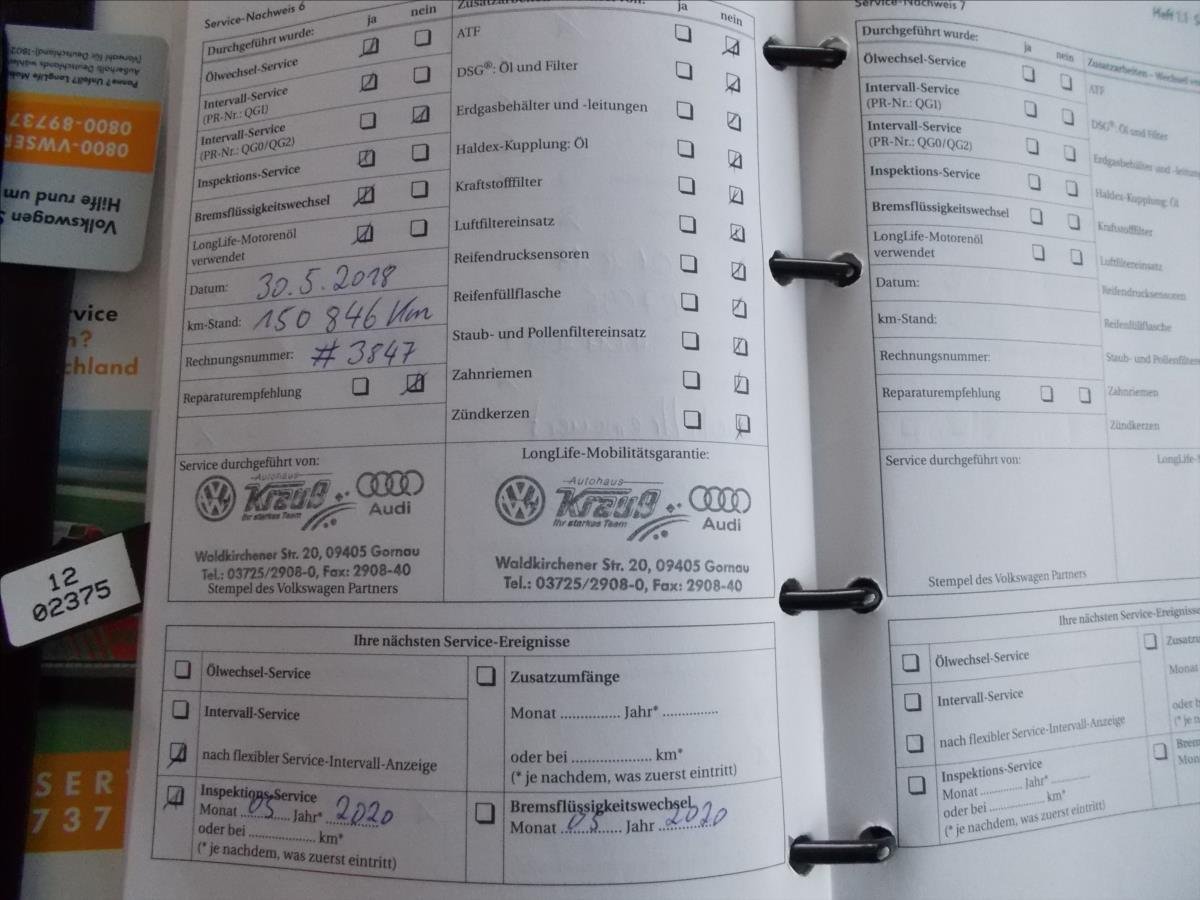 Service-Nachweis 6
Durchgeführt wurde:
ja
nein
Ölwechsel-Service
Intervall-Service
(PR-Nr.: QG1)
Intervall-Service
(PR-Nr.: QG0/QG2)
Inspektions-Service
Bremsflüssigkeitswechsel
LongLife-Motorenöl
verwendet
Datum: 30.5.2018
km-Stand: 150 846 Km
Rechnungsnummer: # 3847
Reparaturempfehlung
ja
nein
ATF
DSG®: Öl und Filter
Erdgasbehälter und -leitungen
Haldex-Kupplung: Öl
Kraftstofffilter
Luftfiltereinsatz
Reifendrucksensoren
Reifenfüllflasche
Staub- und Pollenfiltereinsatz
Zahnriemen
Zündkerzen
Service durchgeführt von:
Autohaus
Krauß
Ihr starkes Team
Audi
Waldkirchener Str. 20, 09405 Gornau
Tel.: 03725/2908-0, Fax: 2908-40
Stempel des Volkswagen Partners
LongLife-Mobilitätsgarantie:
Autohaus
Krauß
Ihr starkes Team
Audi
Waldkirchener Str. 20, 09405 Gornau
Tel.: 03725/2908-0, Fax: 2908-40
Ihre nächsten Service-Ereignisse
Ölwechsel-Service
Intervall-Service
nach flexibler Service-Intervall-Anzeige
Inspektions-Service
Monat 05 Jahr* 2020
oder bei .................. km*
(* je nachdem, was zuerst eintritt)
Zusatzumfänge
Monat ............... Jahr* ..............
oder bei .................... km*
(* je nachdem, was zuerst eintritt)
Bremsflüssigkeitswechsel
Monat 05 Jahr 2020
Service-Nachweis 7
Durchgeführt wurde:
ja
nein
Ölwechsel-Service
Intervall-Service
(PR-Nr.: QG1)
Intervall-Service
(PR-Nr.: QG0/QG2)
Inspektions-Service
Bremsflüssigkeitswechsel
LongLife-Motorenöl
verwendet
Datum:
km-Stand:
Rechnungsnummer:
Reparaturempfehlung
Heft 1.1
Zusatzarbeiten – Wechsel
ATF
DSG®: Öl und Filter
Erdgasbehälter und
Haldex-Kupplung: Öl
Kraftstofffilter
Luftfiltereinsatz
Reifendrucksensoren
Reifenfüllflasche
Staub- und
Zahnriemen
Zündkerzen
Service durchgeführt von:
Stempel des Volkswagen Partners
Ihre nächsten Service-Ereignisse
Ölwechsel-Service
Intervall-Service
nach flexibler Service-Intervall-Anzeige
Inspektions-Service
Monat .............. Jahr* ............
oder bei .................. km*
(* je nachdem, was zuerst eintritt)
Monat
oder
Volkswagen
Hilfe rund um
0800-VWSER
0800-89737
Panne? Unfall? LongLife
12
02375
SER
737